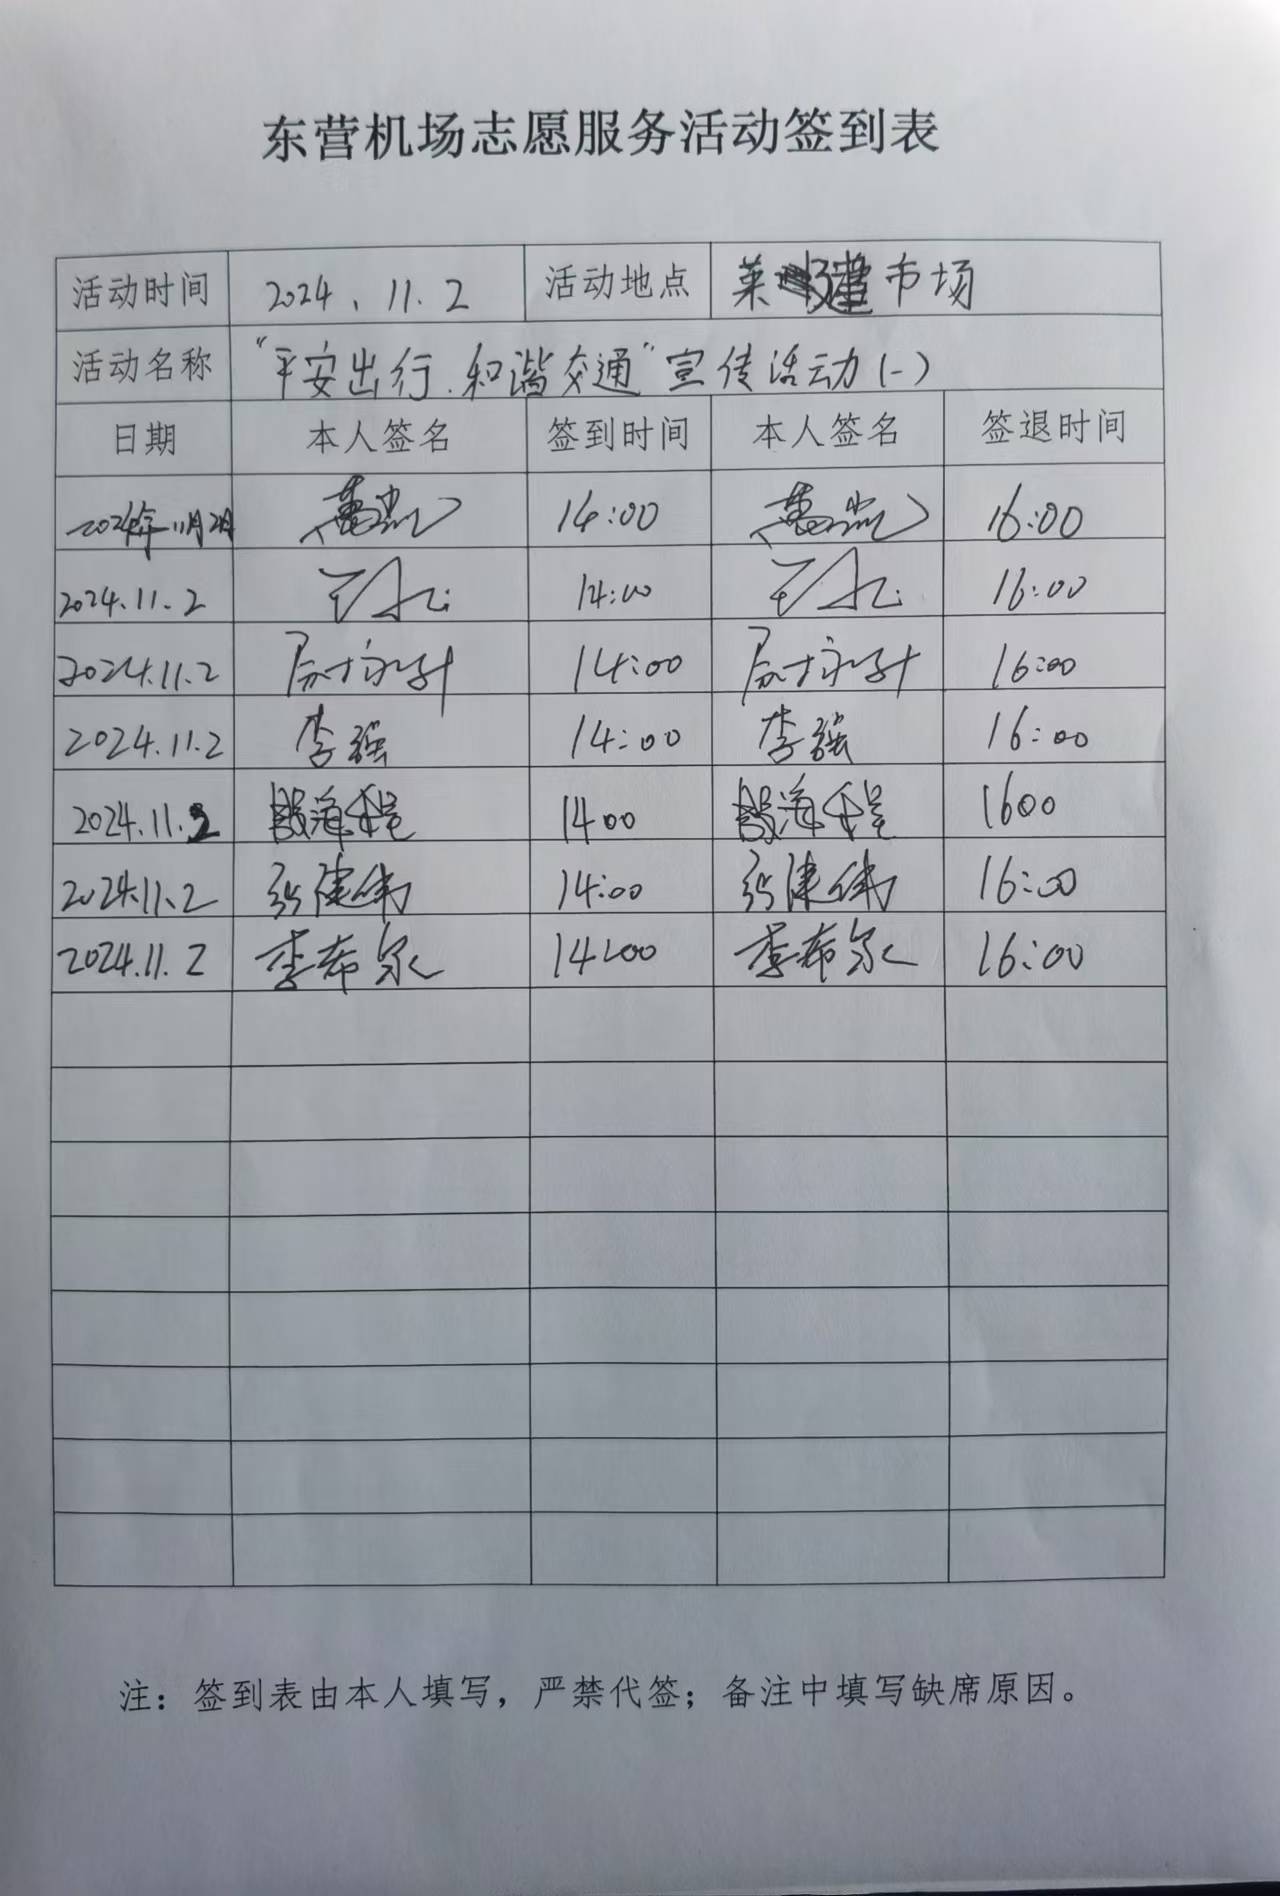 东营机场志愿服务活动签到表
活动时间 2024.11.2 活动地点 莱 市场
活动名称 "平安出行.和谐交通"宣传活动(一)
日期 本人签名 签到时间 本人签名 签退时间
2024年11月2日 14:00 16:00
2024.11.2 14:00 16:00
2024.11.2 14:00 16:00
2024.11.2 李强 14:00 李强 16:00
2024.11.2 殷海程 1400 殷海程 1600
2024.11.2 张建伟 14:00 张建伟 16:00
2024.11.2 李希泉 14:00 李希泉 16:00
注：签到表由本人填写，严禁代签；备注中填写缺席原因。